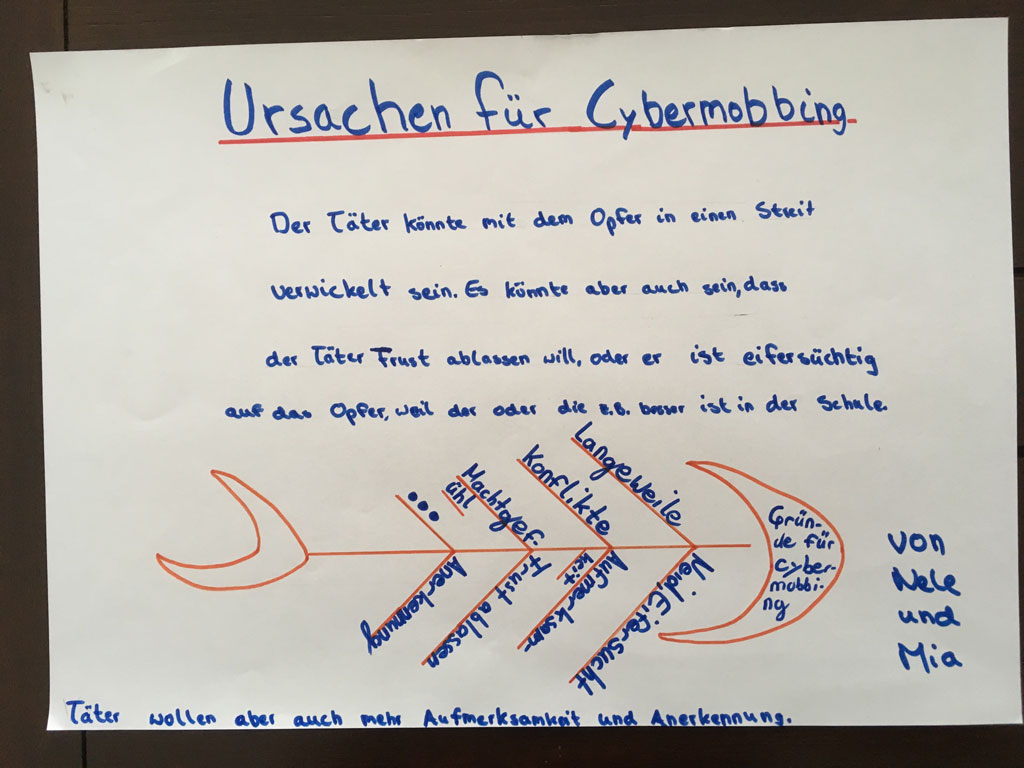 Ursachen für Cybermobbing
Der Täter könnte mit dem Opfer in einen Streit
verwickelt sein. Es könnte aber auch sein, dass
der Täter Frust ablassen will, oder er ist eifersüchtig
auf das Opfer, weil der oder die z.B. besser ist in der Schule.
Langeweile
Konflikte
Machtgef-
ühl
...
Grün-
de für
Cyber-
mobbi-
ng
Neid/Eifersucht
Aufmerksam-
keit
Frust ablassen
Anerkennung
von
Nele
und
Mia
Täter wollen aber auch mehr Aufmerksamkeit und Anerkennung.